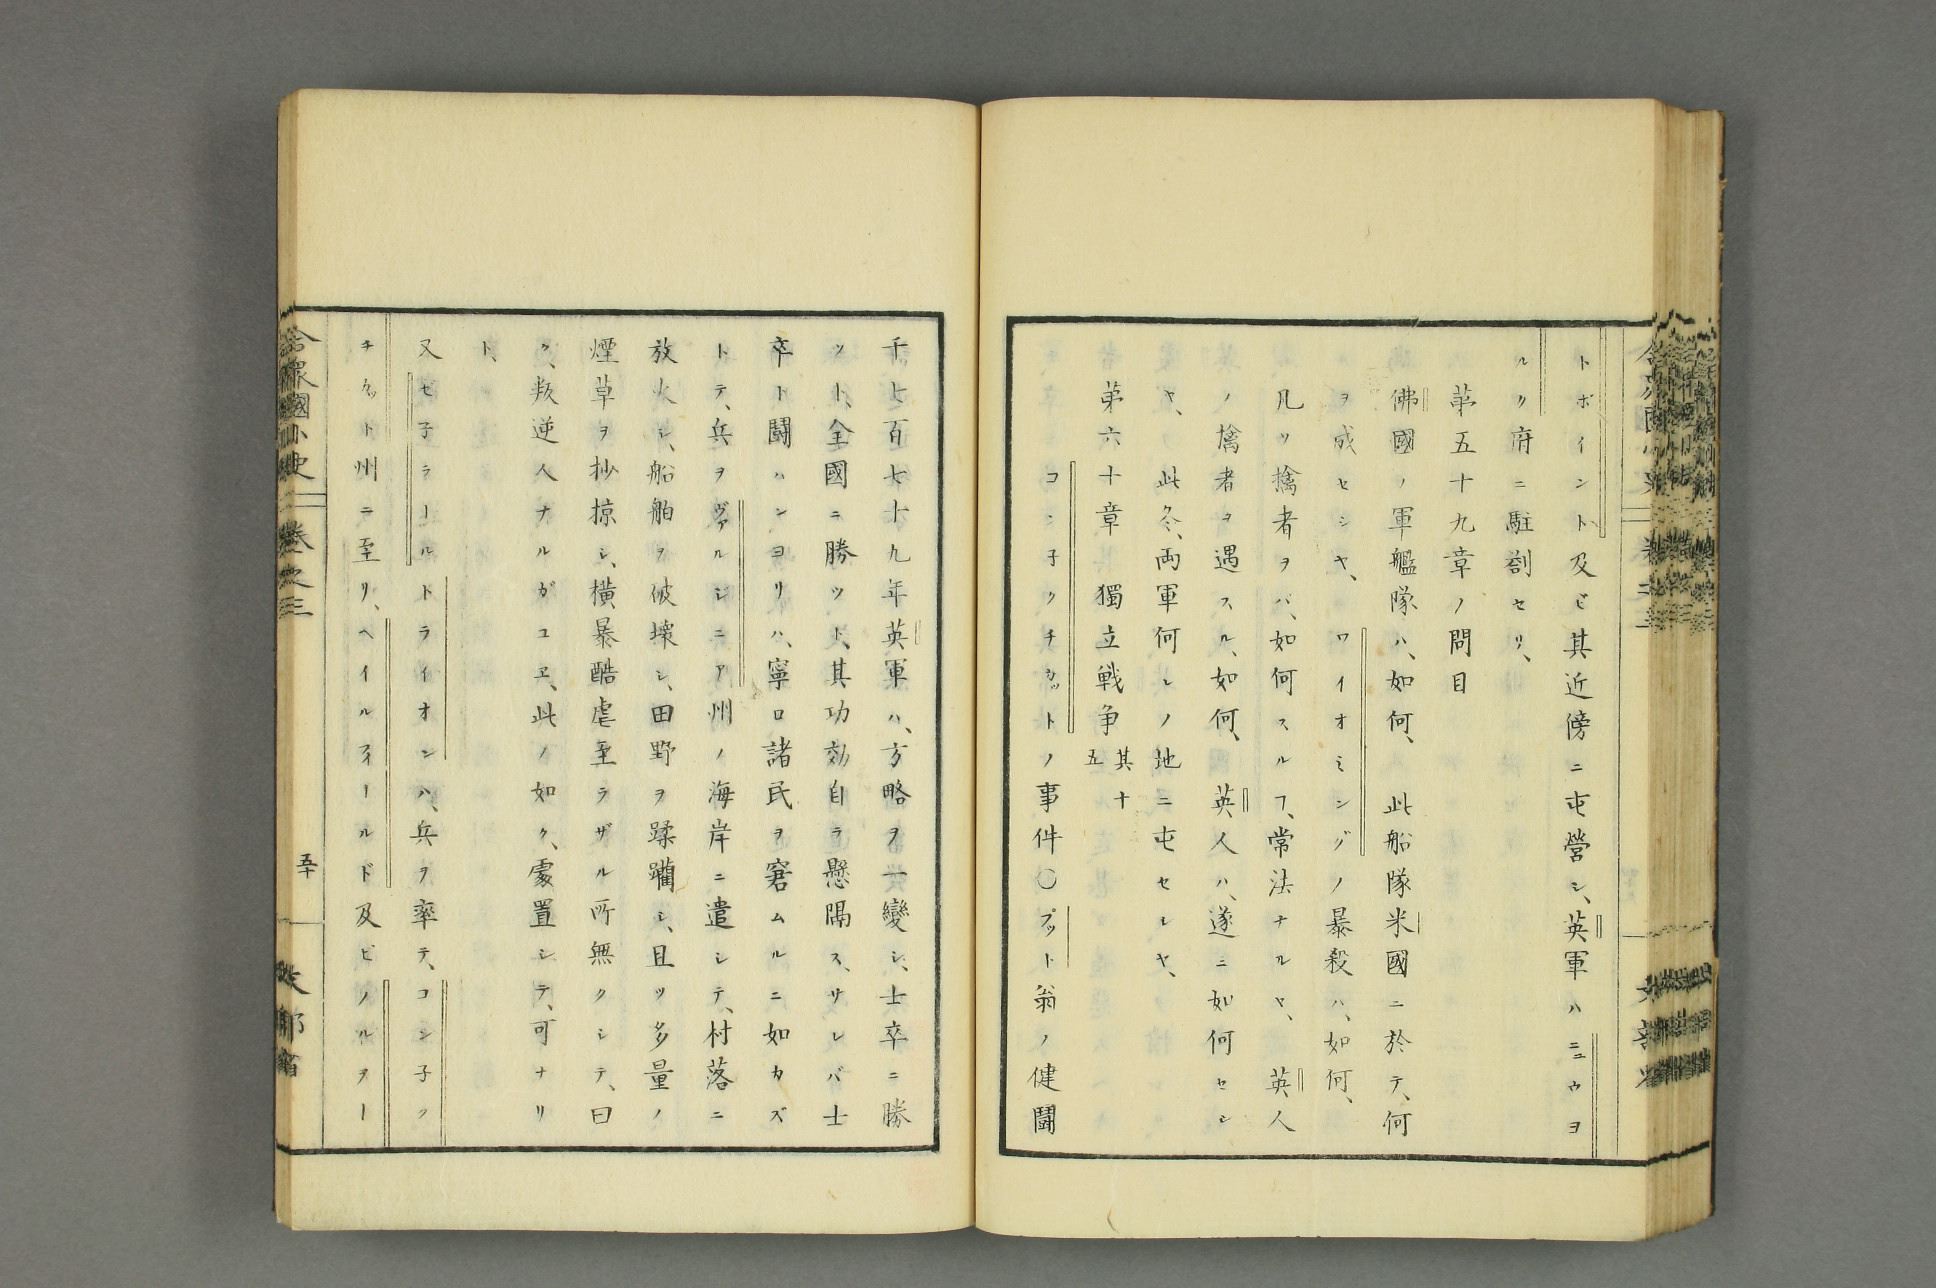 トポイント及ビ其近傍ニ屯營シ、英軍ハニュウヨ
ルク府ニ駐劄セリ、
苐五十九章ノ問目
佛國ノ軍艦隊ハ、如何、此船隊米國ニ於テ、何
ヲ成セシヤ、ワイオミングノ暴殺ハ、如何、
凡ソ擒者ヲバ、如何スルヿ、常法ナルヤ、英人
ノ擒者ヲ遇スル、如何、英人ハ、遂ニ如何セシ
ヤ、此冬、両軍何レノ地ニ屯セシヤ、
苐六十章 獨立戦争 其十五
コン子クチカットノ事件〇プット翁ノ健鬪
千七百七十九年英軍ハ、方略ヲ一變シ、士卒ニ勝
ツト、全國ニ勝ツト、其功効自ラ懸隔ス、サレバ士
卒ト鬪ハンヨリハ、寧ロ諸民ヲ窘ムルニ如カズ
トテ、兵ヲヴァルジニア州ノ海岸ニ遣シテ、村落ニ
放火シ、船舶ヲ破壊シ、田野ヲ蹂躪シ、且ツ多量ノ
煙草ヲ抄掠シ、横暴酷虐至ラザル所無クシテ、曰
ク、叛逆人ナルガユヱ、此ノ如ク、處置シテ、可ナリ
ト、
又ゼ子ラールトライオンハ、兵ヲ率テ、コン子ク
チカット州ニ至リ、ヘイルフィールド及ビノルヲー
合衆國小史 巻之三
五十
文部省